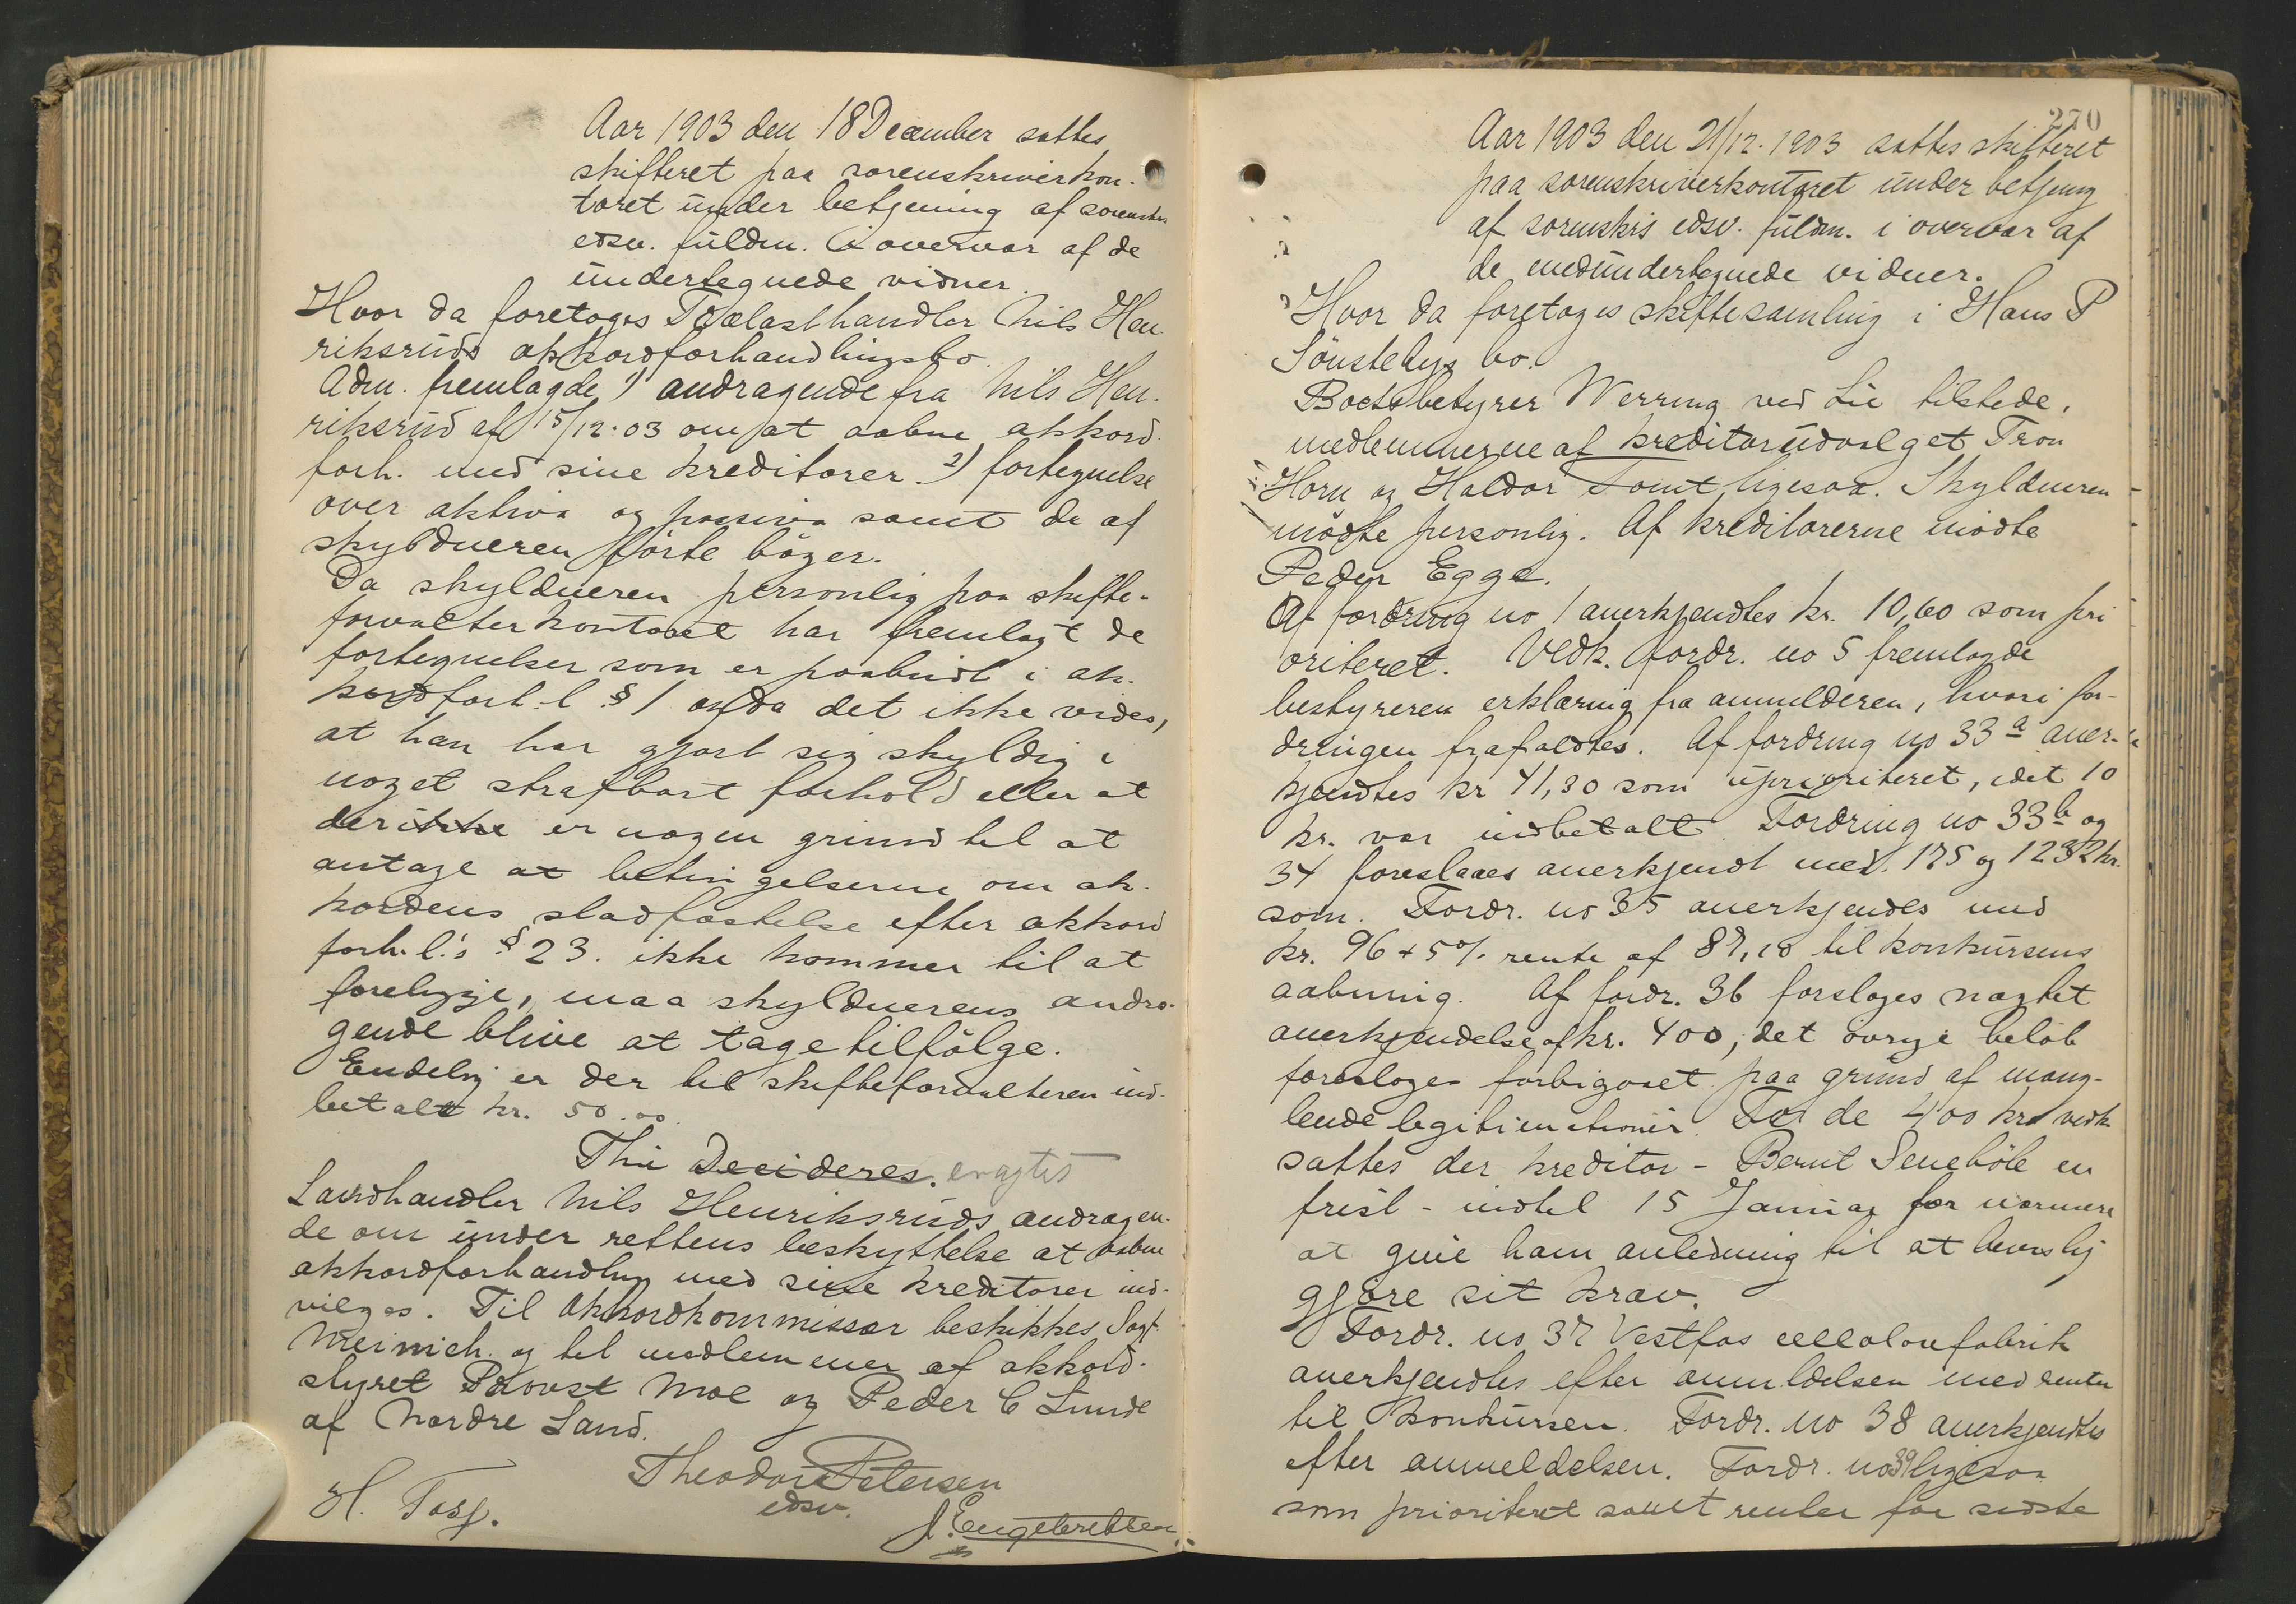 Aar 1903 den 18 December sattes
skifteret paa sorenskriverkon-
toret under betjening af sorenskrs
edsv. fuldm. i overvær af de
undertegnede vidner.
Hvor da foretoges Trælasthandler Nils Hen-
riksruds akkordforhandlingsbo.
Adm. fremlagde 1) andragende fra Nils Hen-
riksrud af 15/12.03 om at aabne akkord-
forh. med sine kreditorer. 2) fortegnelse
over aktiva og passiva samt de af
skyldneren förte böger.
Da skyldneren personlig paa skifte-
forvalterkontoret har fremlagt de
fortegnelser som er paabudt i ak-
kordforh.l § 1 og da det ikke vides,
at han har gjort sig skyldig i
noget strafbart forhold eller at
der ikke er nogen grund til at
antage at betingelserne om ak-
kordens stadfæstelse efter akkord
forh.l.'s § 23. ikke kommer til at
foreligge, maa skyldnerens andra-
gende blive at tage tilfölge.
Endelig er der til skifteforvalteren ind-
betalt kr. 50.00
Thi Decideres. eragtes
Landhandler Nils Henriksruds andragen-
de om under rettens beskyttelse at aabne
akkordforhandling med sine kreditorer ind-
vilges. Til Akkordkommissær beskikkes Sagf.
Meinich. og til medlemmer af akkord-
styret Provst Moe og Peder C Lunde
af Nordre Land.
Theodor Petersen
H. Fosf. edsv.
J. Engebretsen
270
Aar 1903 den 21/12.1903 sattes skifteret
paa sorenskriverkontoret under betjeng
af sorenskrs edsv. fuldm. i overvær af
de medundertegnede vidner.
Hvor da foretoges skiftesamling i Hans P
Sönstebys bo.
Boetsbetyrer Werring ved Lie tilstede,
medlemmerne af kreditorudvalget Tron
Horn og Haldor Tomt ligesaa. Skyldneren
mödte personlig. Af kreditorerne mödte
Peder Egge.
Af fordring no 1 anerkjendtes kr. 10,60 som pri
oriteret. Vedk. fordr. no 5 fremlagde
bestyreren erklæring fra anmelderen, hvori for-
dringen frafaldtes. Af fordring no 33 a aner-
kjendtes kr 41,30 som uprioriteret, idet 10
kr. var indbetalt. Fordring no 33 b og
34 foreslaaes anerkjendt med. 175 og 1232 kr.
som. Fordr. no 35 anerkjendes med
kr. 96 + 5% rente af 87,10 til konkursens
aabning. Af fordr. 36 forsloges nægtet
anerkjendelse af kr. 400, det övrige belöb
foresloges forbigaaet paa grund af mang-
lende legitimationer. For de 400 krs vedk
sattes der kreditor - Bernt Seneböle en
frist - indtil 15 Januar for nærmere
at give ham anledning til at bevislig
gjöre sit krav.
Fordr. no 37 Vestfos cellulosefabrik
anerkjendtes efter anmeldelsen med renter
til konkursen. Fordr. no 38 anerkjendtes
efter anmeldelsen. Fordr. no 39 ligesaa
som prioriteret samt renter for sidste